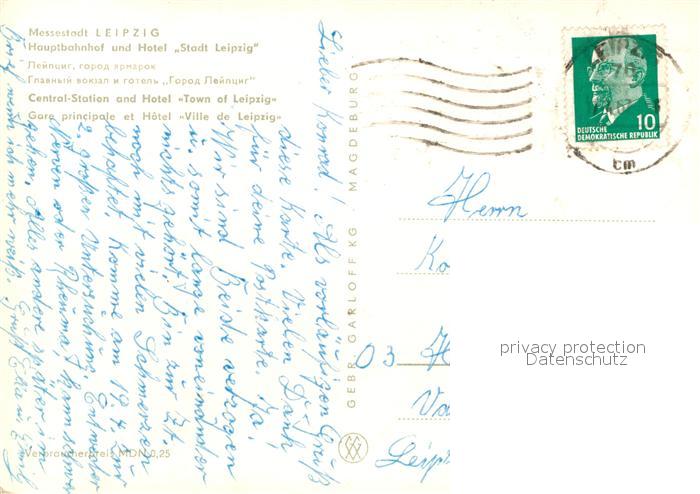 Messestadt LEIPZIG
Hauptbahnhof und Hotel „Stadt Leipzig“
Лейпциг, город ярмарок
Главный вокзал и готель „Город Лейпциг“
Central-Station and Hotel «Town of Leipzig»
Gare principale et Hôtel «Ville de Leipzig»
Lieber Konrad! Als vorläufigen Gruß
diese Karte. Vielen Dank
für deine Postkarte. Ja!
Wir sind Beide verzogen
u. somit lange voneinander
nichts gehört! Bin zur Zt.
noch mit vielen Schmerzen
Komme am 19.4. zur
2. großen Untersuchung. Entweder
Nerven oder Rheuma,
Alles andere später im
Brief
GEBR. GARLOFF KG · MAGDEBURG
Verbraucherpreis MDN 0,25
10
DEUTSCHE
DEMOKRATISCHE REPUBLIK
tm
Herrn
Ko
03 H
Va
Leipz
privacy protection
Datenschutz